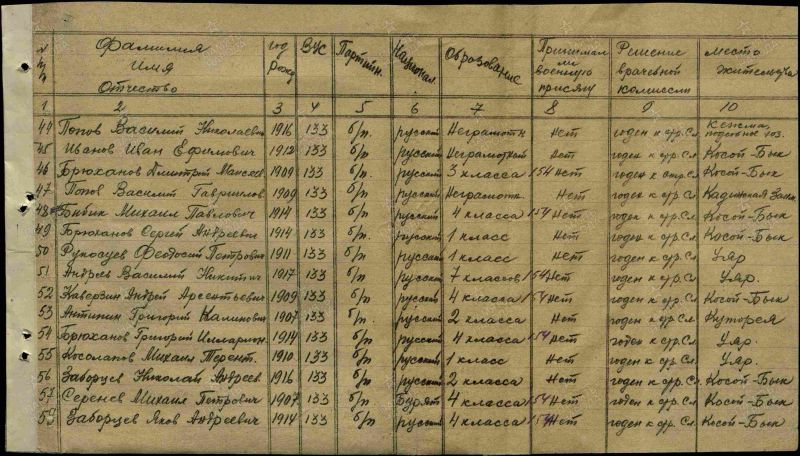 № п/п Фамилия Имя Отчество год рожд ВУС Партийн. Национал. Образование Принимал ли военную присягу Решение врачебной комиссии место жительства
1 2 3 4 5 6 7 8 9 10
44 Попов Василий Николаевич 1916 133 б/п. русский Неграмотн Нет годен к стр. Сл Кежма, подсобное хоз.
45 Иванов Иван Ефимович 1912 133 б/п русский Неграмотный Нет годен к стр. Сл. Косой-Бык
46 Брюханов Дмитрий Моисеев 1909 133 б/п. русский 3 класса 154 Нет годен к стр. Сл Косой-Бык
47 Попов Василий Гаврилов 1909 133 б/п русский Неграмотн. Нет годен к стр. Сл.
48 Бибик Михаил Павлович 1914 133 б/п русский 4 класса 154 Нет годен к стр. Сл Косой-Бык
49 Брюханов Сергей Андреевич 1914 133 б/п. русский 1 класс Нет годен к стр. Сл Косой-Бык
50 Рукосуев Феодосий Петрович 1911 133 б/п русский 1 класс Нет годен к стр. Сл Уяр
51 Андреев Василий Никитич 1917 133 б/п русский 7 классов 154 Нет годен к стр. Сл Уяр.
52 Каверзин Андрей Арсентьевич 1909 133 б/п русский 4 класса 154 Нет годен к стр. Сл. Косой-Бык
53 Антипин Григорий Калинович 1907 133 б/п. русский 2 класса Нет годен к стр. Сл
54 Брюханов Григорий Илларион. 1914 133 б/п русский 4 класса 154 Нет годен к стр. Сл. Уяр.
55 Косолапов Михаил Терент. 1910 133 б/п русский 1 класс Нет годен к стр. Сл. Уяр.
56 Заборцев Николай Андреев. 1916 133 б/п русский 2 класса Нет годен к стр. Сл. Косой-Бык
57 Михаил Петрович 1907 133 б/п Бурят 4 класса 154 Нет годен к стр. Сл. Косой-Бык
58 Заборцев Яков Андреевич 1914 133 б/п русский 4 класса 154 Нет годен к стр. Сл. Косой-Бык